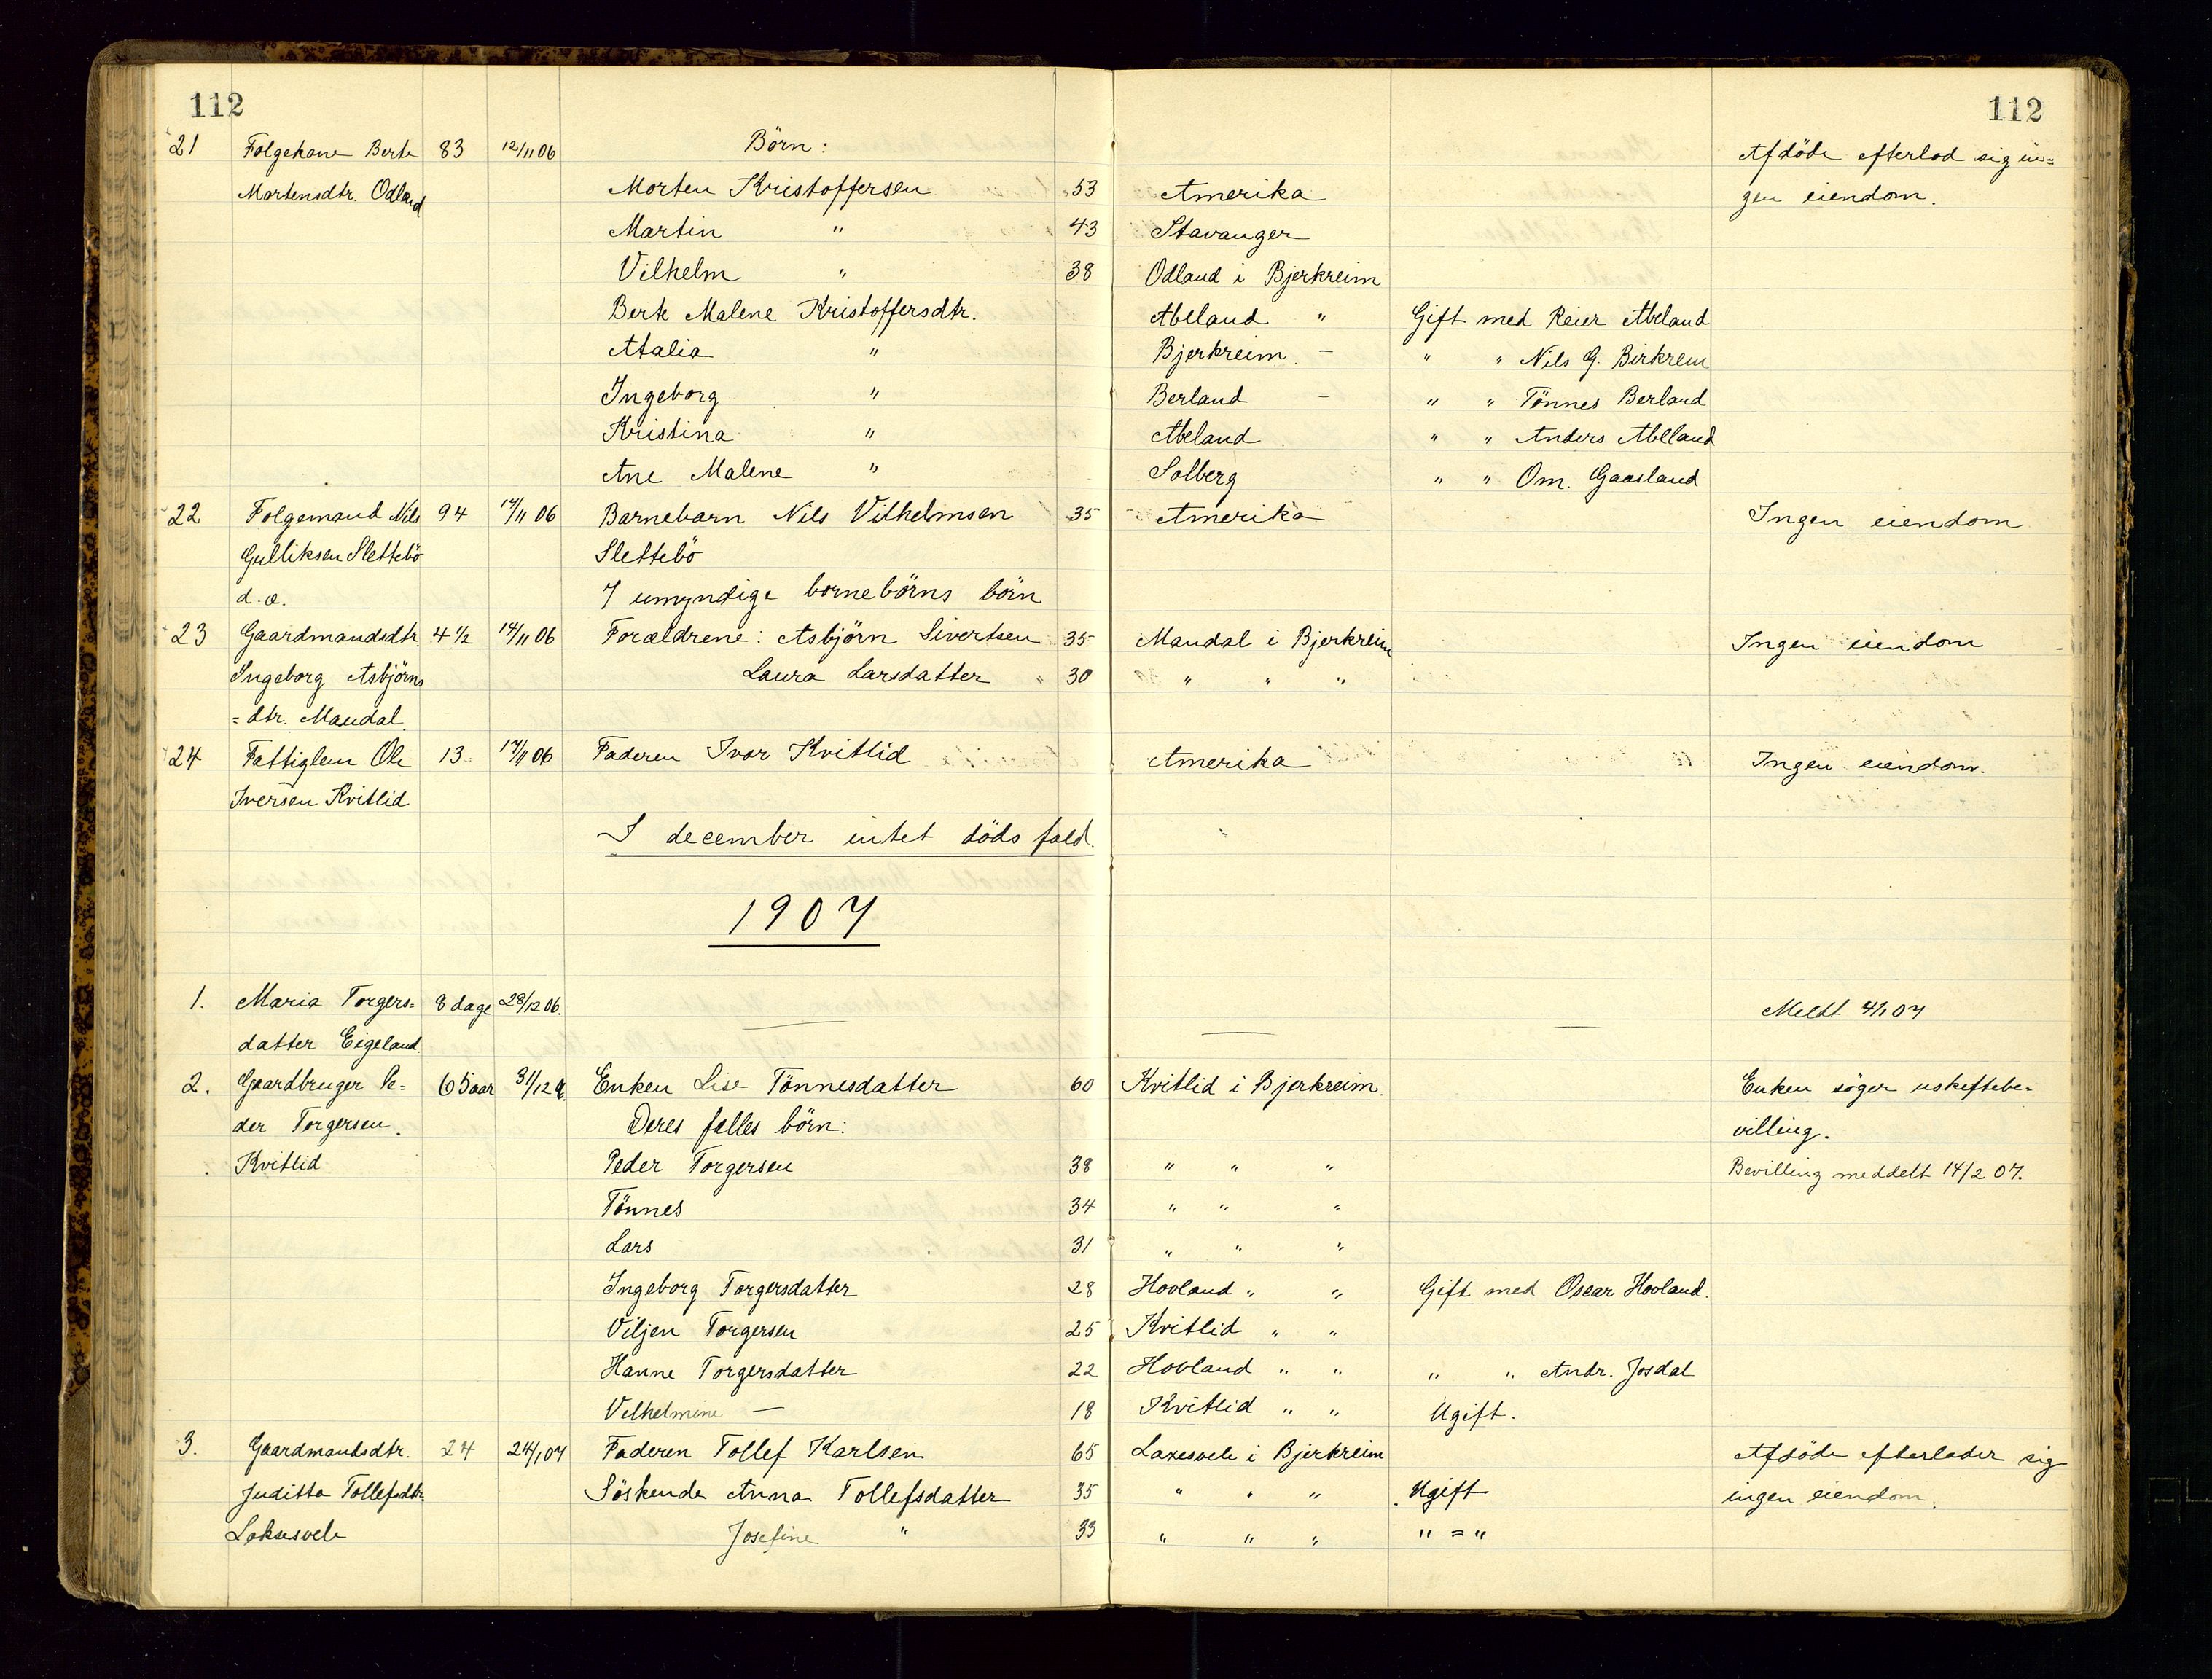 112 112
21 Folgekone Berte 83 12/11 06 Börn: Afdöde efterlod sig in=
Mortensdtr. Odland Morten Kristoffersen 53 Amerika gen eiendom.
Martin " 43 Stavanger
Vilhelm " 38 Odland i Bjerkreim
Berte Malene Kristoffersdtr. Abeland " Gift med Reier Abeland
Atalia " Bjerkreim - " " Nils G. Birkrem
Ingeborg " Berland - " " Tönnes Berland
Kristina " Abeland " " Anders Abelland
Ane Malene " Solberg " " Om. Gaasland
22 Folgemand Nils 94 14/11 06 Barnebarn Nils Vilhelmsen 35 Amerika Ingen eiendom
Gulliksen Slettebö Slettebö
d.æ. 7 umyndige bornebörns börn
23 Gaardmandsdtr. 4 1/2 14/11 06 Forældrene: Asbjörn Sivertsen 35 Maudal i Bjerkreim Ingen eiendom
Ingeborg Asbjörns Laura Larsdatter 30 " " "
=dtr. Maudal
24 Fattiglem Ole 13 14/11 06 Faderen Ivar Kvitlid Amerika Ingen eiendom.
Iversen Kvitlid
I december intet döds fald.
1907
1. Maria Torgers= 8 dage 28/12 06. Meldt 4/1 07
datter Eigeland.
2. Gaardbruger Pe= 65 aar 31/12 Enken Lise Tönnesdatter 60 Kvitlid i Bjerkreim. Enken söger uskiftebe=
der Torgersen. Deres felles börn: villing.
Kvitlid Peder Torgersen 38 " " " Bevilling meddelt 14/2 07.
Tönnes 34 " " "
Lars 31 " " "
Ingeborg Torgersdatter 28 Hovland " " Gift med Oscar Hovland.
Viljen Torgersen 25 Kvitlid " "
Hanne Torgersdatter 22 Hovland " " " " Andr. Josdal
Vilhelmine — 18 Kvitlid " " Ugift.
3. Gaardmandsdtr. 24 24/1 07 Faderen Tollef Karlsen 65 Laxesvele i Bjerkreim Afdöde efterlader sig
Juditta Tollefsdtr. Söskende Anna Tollefsdatter 35 " " " Ugift ingen eiendom.
Laksesvele Josefine " 33 " " " " = "